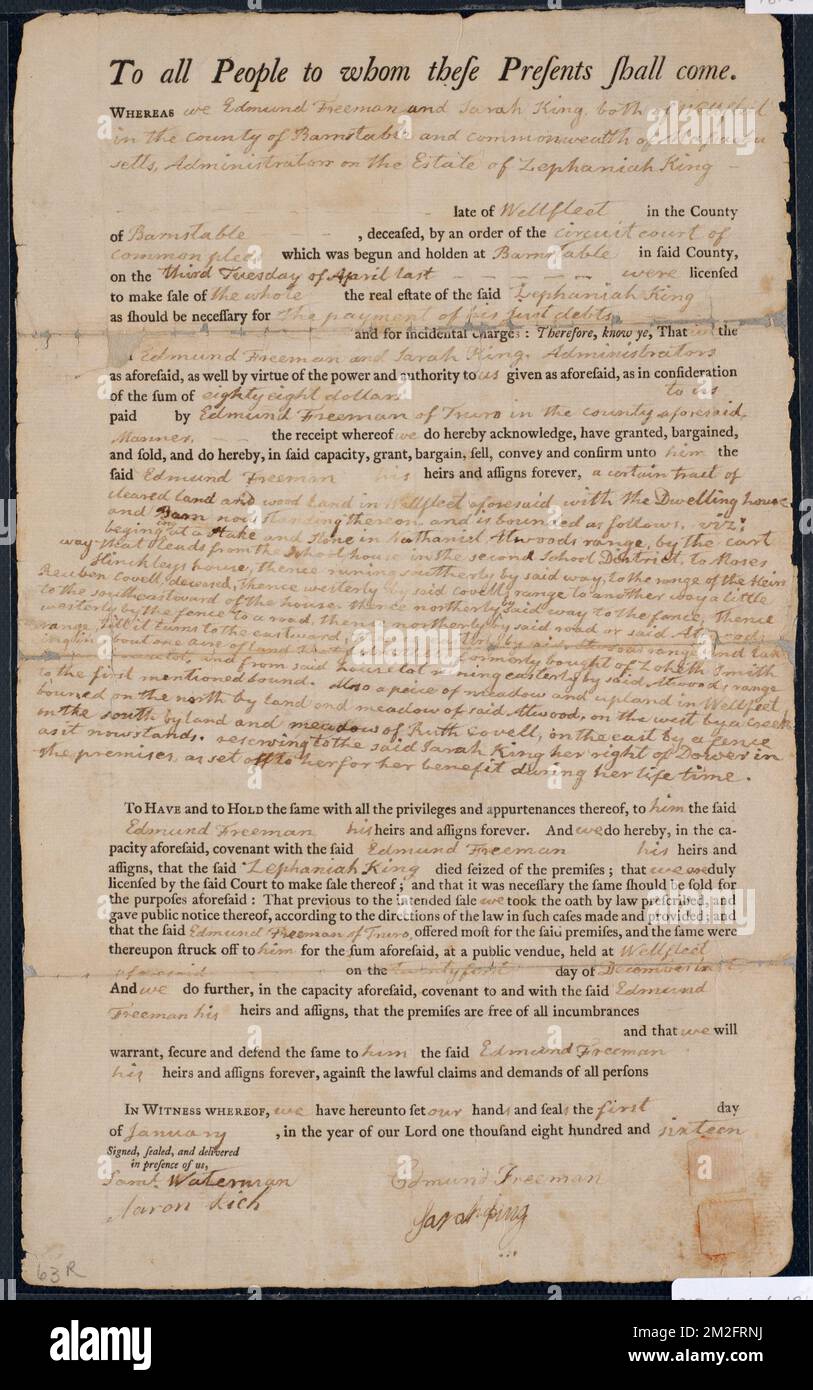 To all People to whom theſe Preſents ſhall come.
WHEREAS we Edmund Freeman and Sarah King, both of Wellfleet
in the county of Barnstable and commonwealth of Maſsachu
setts, Administrators on the Estate of Zephaniah King
late of Wellfleet in the County
of Barnstable , deceaſed, by an order of the circuit court of
common pleas which was begun and holden at Barnstable in ſaid County,
on the third Tuesday of April last were licenſed
to make ſale of the whole the real eſtate of the ſaid Zephaniah King
as ſhould be neceſſary for the payment of his just debts,
and for incidental Charges : Therefore, know ye, That the
Edmund Freeman and Sarah King, Administrators
as aforeſaid, as well by virtue of the power and authority to us given as aforeſaid, as in conſideration
of the ſum of eighty eight dollars to us
paid by Edmund Freeman of Truro in the county aforesaid,
Mariner, the receipt whereof we do hereby acknowledge, have granted, bargained,
and ſold, and do hereby, in ſaid capacity, grant, bargain, ſell, convey and confirm unto him the
ſaid Edmund Freeman his heirs and aſſigns forever, a certain tract of
cleared land and wood land in Wellfleet aforesaid with the Dwelling house
and Barn now standing thereon and is bounded as follows, viz:
begining at a Stake and Stone in Nathaniel Atwoods range, by the cart
way that leads from the School house in the second School District, to Moses
Hinckleys house, thence runing southerly by said way, to the range of the Heirs
Reuben Covell, deceased, thence westerly by said covells range to another way a little
to the southeastward of the house. thence northerly by said way to the fence, thence
westerly by the fence to a road, thence northerly by said road or said Atwoods
range, till it turns to the eastward,
about one acre of land formerly bought of Zoheth Smith
and from said house lot runing easterly by said Atwoods range
to the first mentioned bound. Also a peice of meadow and upland in Wellfleet
bouned on the north by land and meadow of said Atwood, on the west by a creek
on the south by land and meadow of Ruth Covell, on the east by a fence
as it now stands. reserving to the said Sarah King her right of Dower in
the premises, as set off to her for her benefit during her life time.
TO HAVE and to HOLD the ſame with all the privileges and appurtenances thereof, to him the ſaid
Edmund Freeman his heirs and aſſigns forever. And we do hereby, in the ca-
pacity aforeſaid, covenant with the ſaid Edmund Freeman his heirs and
aſſigns, that the ſaid Zephaniah King died ſeized of the premiſes ; that we are duly
licenſed by the ſaid Court to make ſale thereof ; and that it was neceſſary the ſame ſhould be ſold for
the purpoſes aforeſaid : That previous to the intended ſale we took the oath by law preſcribed, and
gave public notice thereof, according to the directions of the law in ſuch caſes made and provided ; and
that the ſaid Edmund Freeman of Truro, offered moſt for the ſaid premiſes, and the ſame were
thereupon ſtruck off to him for the ſum aforeſaid, at a public vendue, held at Wellfleet
aforesaid on the twenty first day of December
And we do further, in the capacity aforeſaid, covenant to and with the ſaid Edmund
Freeman his heirs and aſſigns, that the premiſes are free of all incumbrances
and that we will
warrant, ſecure and defend the ſame to him the ſaid Edmund Freeman
his heirs and aſſigns forever, againſt the lawful claims and demands of all perſons
IN WITNESS WHEREOF, we have hereunto ſet our hands and ſeals the first day
of January , in the year of our Lord one thouſand eight hundred and sixteen
Signed, ſealed, and delivered
in preſence of us,
Saml. Waterman
Aaron Rich
Edmund Freeman
Sarah King
63R
alamy
Image ID: 2M2FRNJ
www.alamy.com